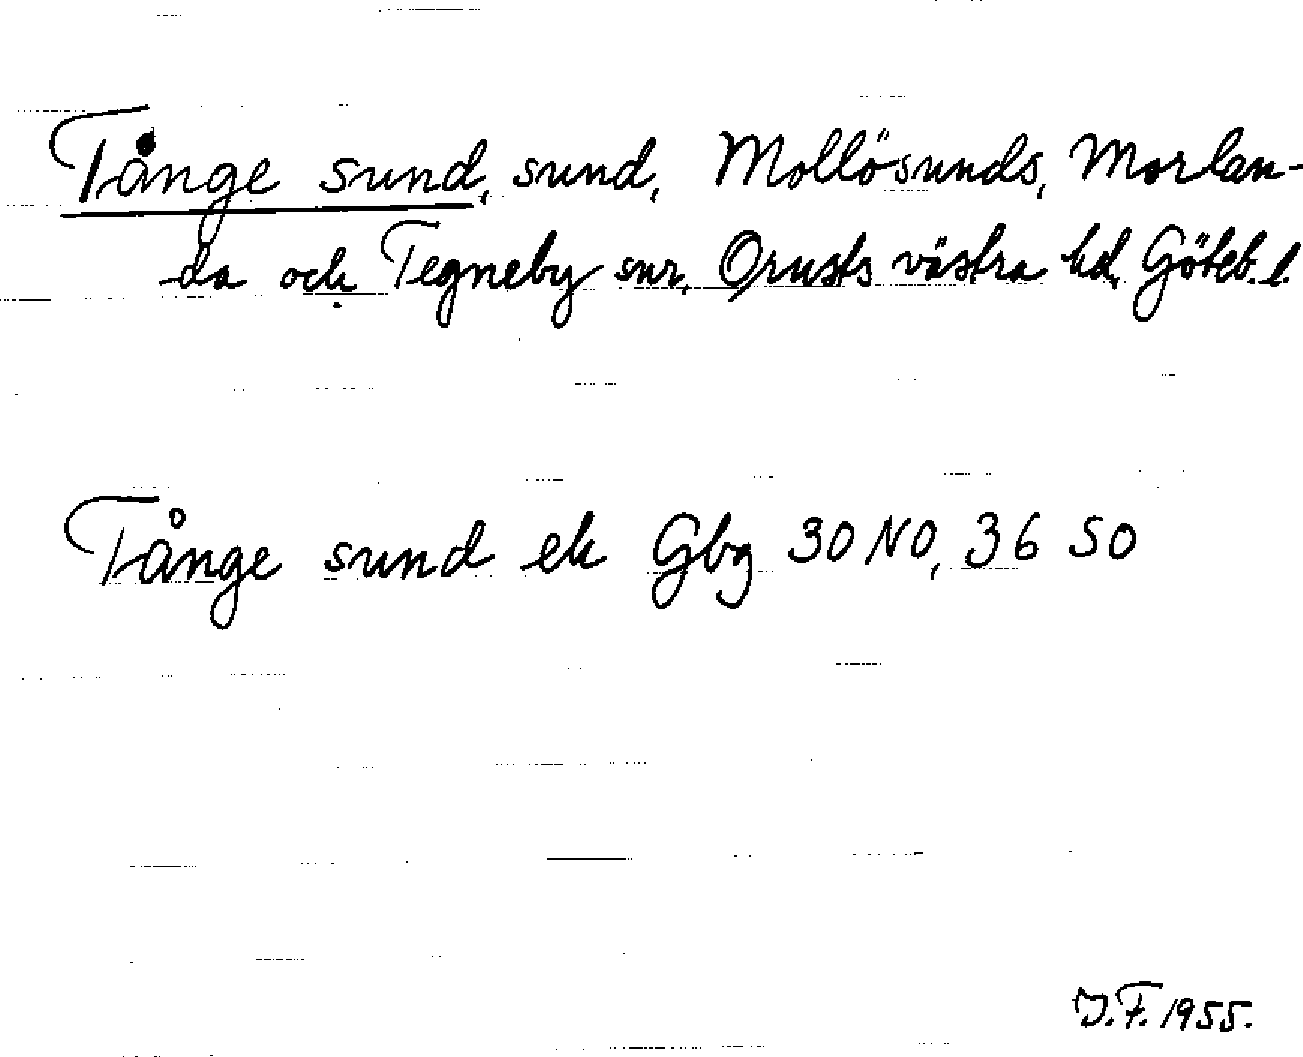 Tånge sund, sund, Mollösunds, Morlan-
da och Tegneby snr, Orusts västra hd, Göteb. l.
Tånge sund ek Gbg 30 NO, 36 SO
J.F. 1955.